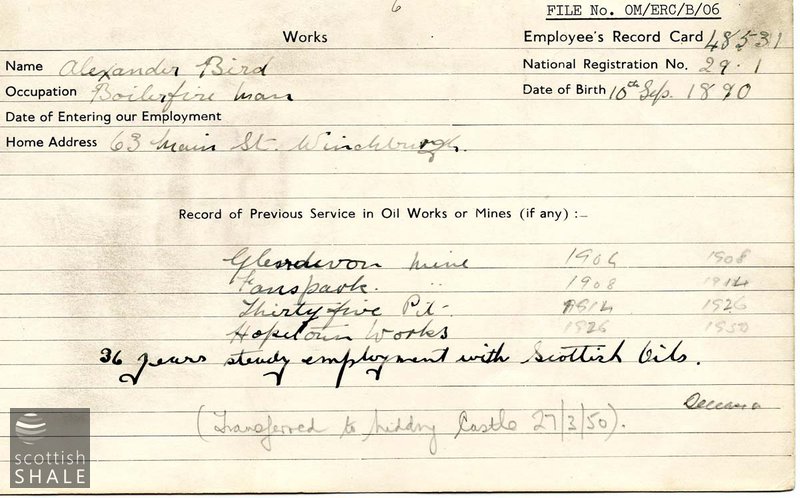 6
FILE No. OM/ERC/B/06
Works Employee's Record Card 48531
Name Alexander Bird National Registration No. 29.1
Occupation Boilerfire man Date of Birth 10th Sep. 1890
Date of Entering our Employment
Home Address 63 Main St. Winchburgh.
Record of Previous Service in Oil Works or Mines (if any) :–
Glendevon Mine 1906 1908
Fanspark. " 1908 1914
Thirty five Pit- 1914 1926
Hopetoun Works 1926 1950
36 years steady employment with Scottish Oils.
Deceased
(Transferred to Niddry Castle 27/3/50).
scottish
SHALE